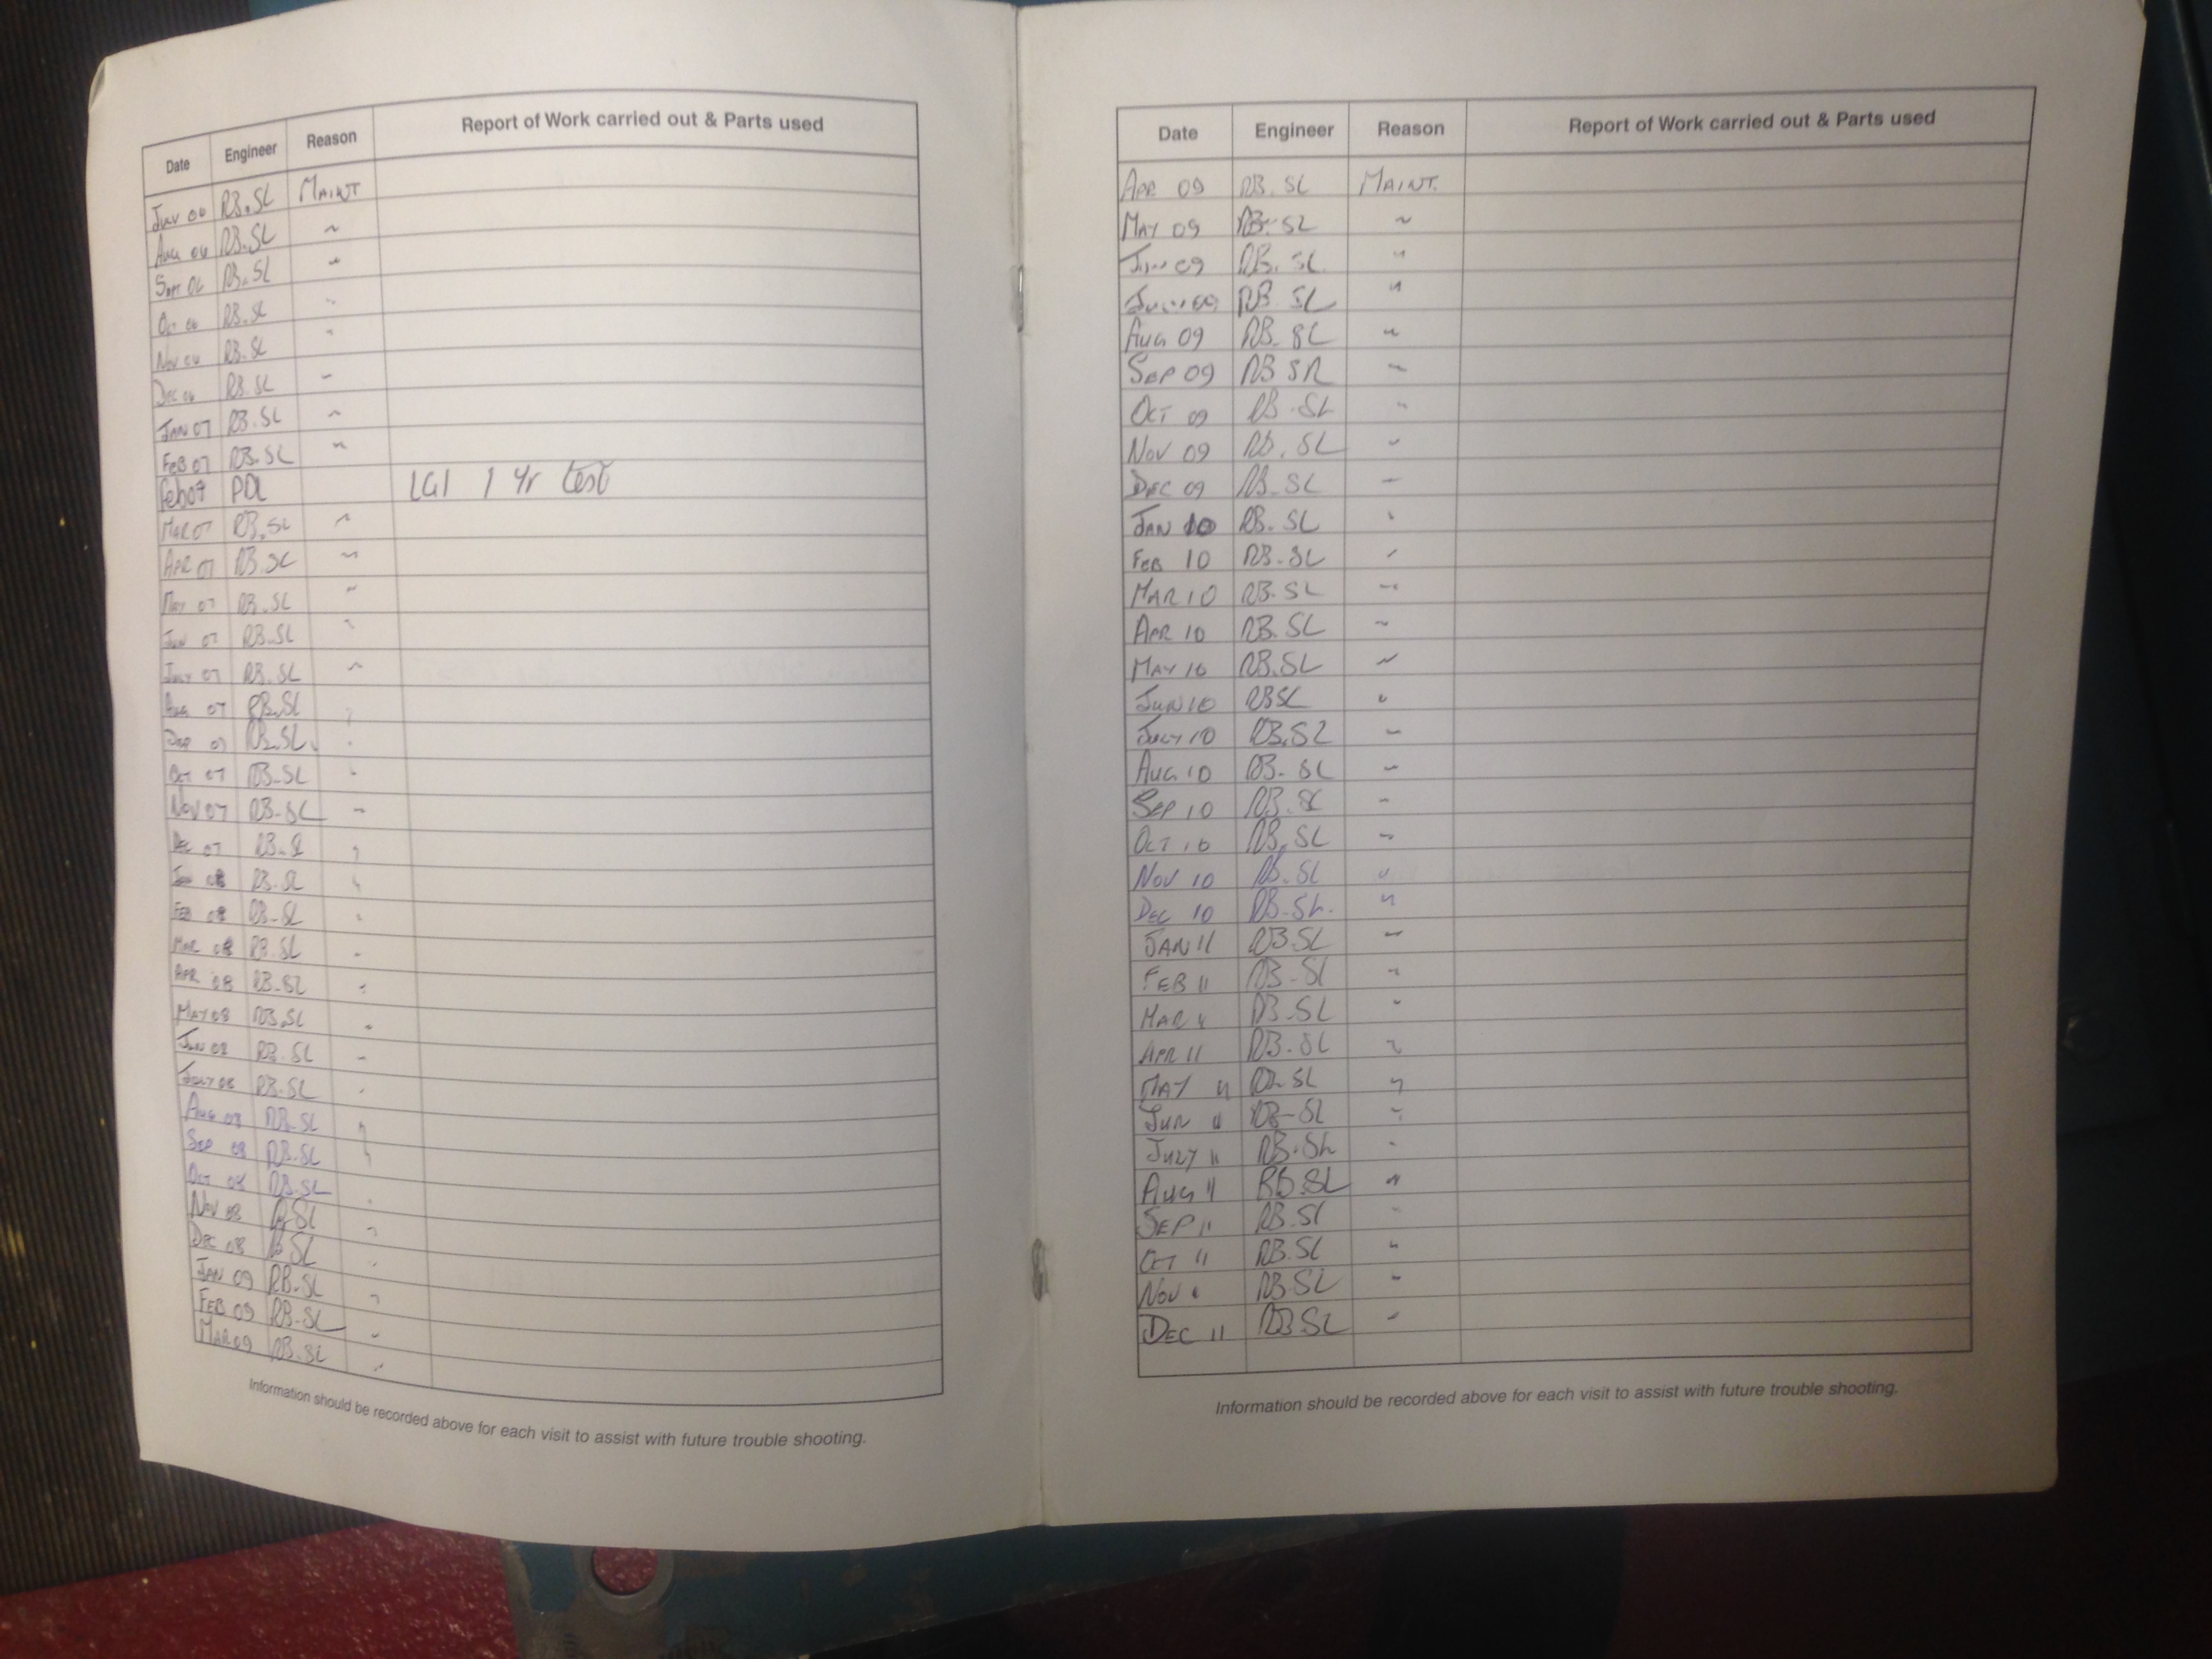 Date Engineer Reason Report of Work carried out & Parts used
RB.SL MAINT
Aug 06 RB.SL ~
Sept 06 RB.SL "
Oct 06 RB.SL "
Nov 06 RB.SL "
Dec 06 RB.SL "
JAN 07 RB.SL "
FEB 07 RB.SL "
Feb 07 PDL LG1 1 Yr test
MAR 07 RB.SL "
APR 07 RB.SL "
MAY 07 RB.SL "
JUN 07 RB.SL "
JULY 07 RB.SL "
Aug 07 RB.SL "
SEP 07 RB.SL "
OCT 07 RB.SL "
NOV 07 RB.SL "
DEC 07 RB.SL "
JAN 08 RB.SL "
FEB 08 RB.SL "
MAR 08 RB.SL "
APR 08 RB.SL "
MAY 08 RB.SL "
JUN 08 RB.SL "
JULY 08 RB.SL "
AUG 08 RB.SL "
SEP 08 RB.SL "
OCT 08 RB.SL "
NOV 08 RB.SL "
DEC 08 RB SL "
JAN 09 RB.SL "
FEB 09 RB.SL "
MAR 09 RB.SL "
Information should be recorded above for each visit to assist with future trouble shooting.
Date Engineer Reason Report of Work carried out & Parts used
APR 09 RB.SL MAINT.
MAY 09 RB.SL ~
JUN 09 RB.SL "
JULY 09 RB SL "
AUG 09 RB.SL "
SEP 09 RB SR "
OCT 09 RB.SL "
NOV 09 RB.SL "
DEC 09 RB.SL "
JAN 10 RB.SL "
FEB 10 RB.SL "
MAR 10 RB.SL "
APR 10 RB.SL "
MAY 10 RB.SL "
JUN 10 RBSL "
JULY 10 RB.SL "
AUG 10 RB.SL "
SEP 10 RB.SL "
OCT 10 RB.SL "
NOV 10 RB.SL "
DEC 10 RB.SL. "
JAN 11 RB.SL "
FEB 11 RB-SL "
MAR 11 RB.SL "
APR 11 RB.SL "
MAY 11 RB SL "
JUN 11 RB-SL "
JULY 11 RB.SL "
AUG 11 RB.SL "
SEP 11 RB.SL "
OCT 11 RB.SL "
NOV " RB.SL "
DEC 11 RB SL "
Information should be recorded above for each visit to assist with future trouble shooting.